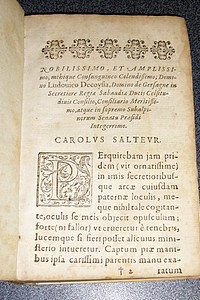 NOBILISSIMO, ET AMPLISSI-
mo, mihique Consanguineo Colendissimo, Domi-
no Ludouico Decoysia, Domino de Gersaque in
Secretiore Regiæ Sabaudiæ Ducis Celsitu-
dinis Consilio, Consiliario Meritissi-
mo, atque in supremo Subalpi-
norum Senatu Præsidi
Integerrimo.
CAROLVS SALTEVR.
PErquirebam jam pri-
dem (vir ornatissime)
in imis secretioribus-
que arcæ cuiusdam
paternæ loculis, me-
que nihil tale cogitan-
te, oculis se meis objecit opusculum;
forte (ni fallor) vt crueretur è tenebris,
lucemque si fieri posset alicuius mini-
sterio intueretur. Captum præ mani-
bus ipsa carissimi parentis manu exa-
† 2 ratum